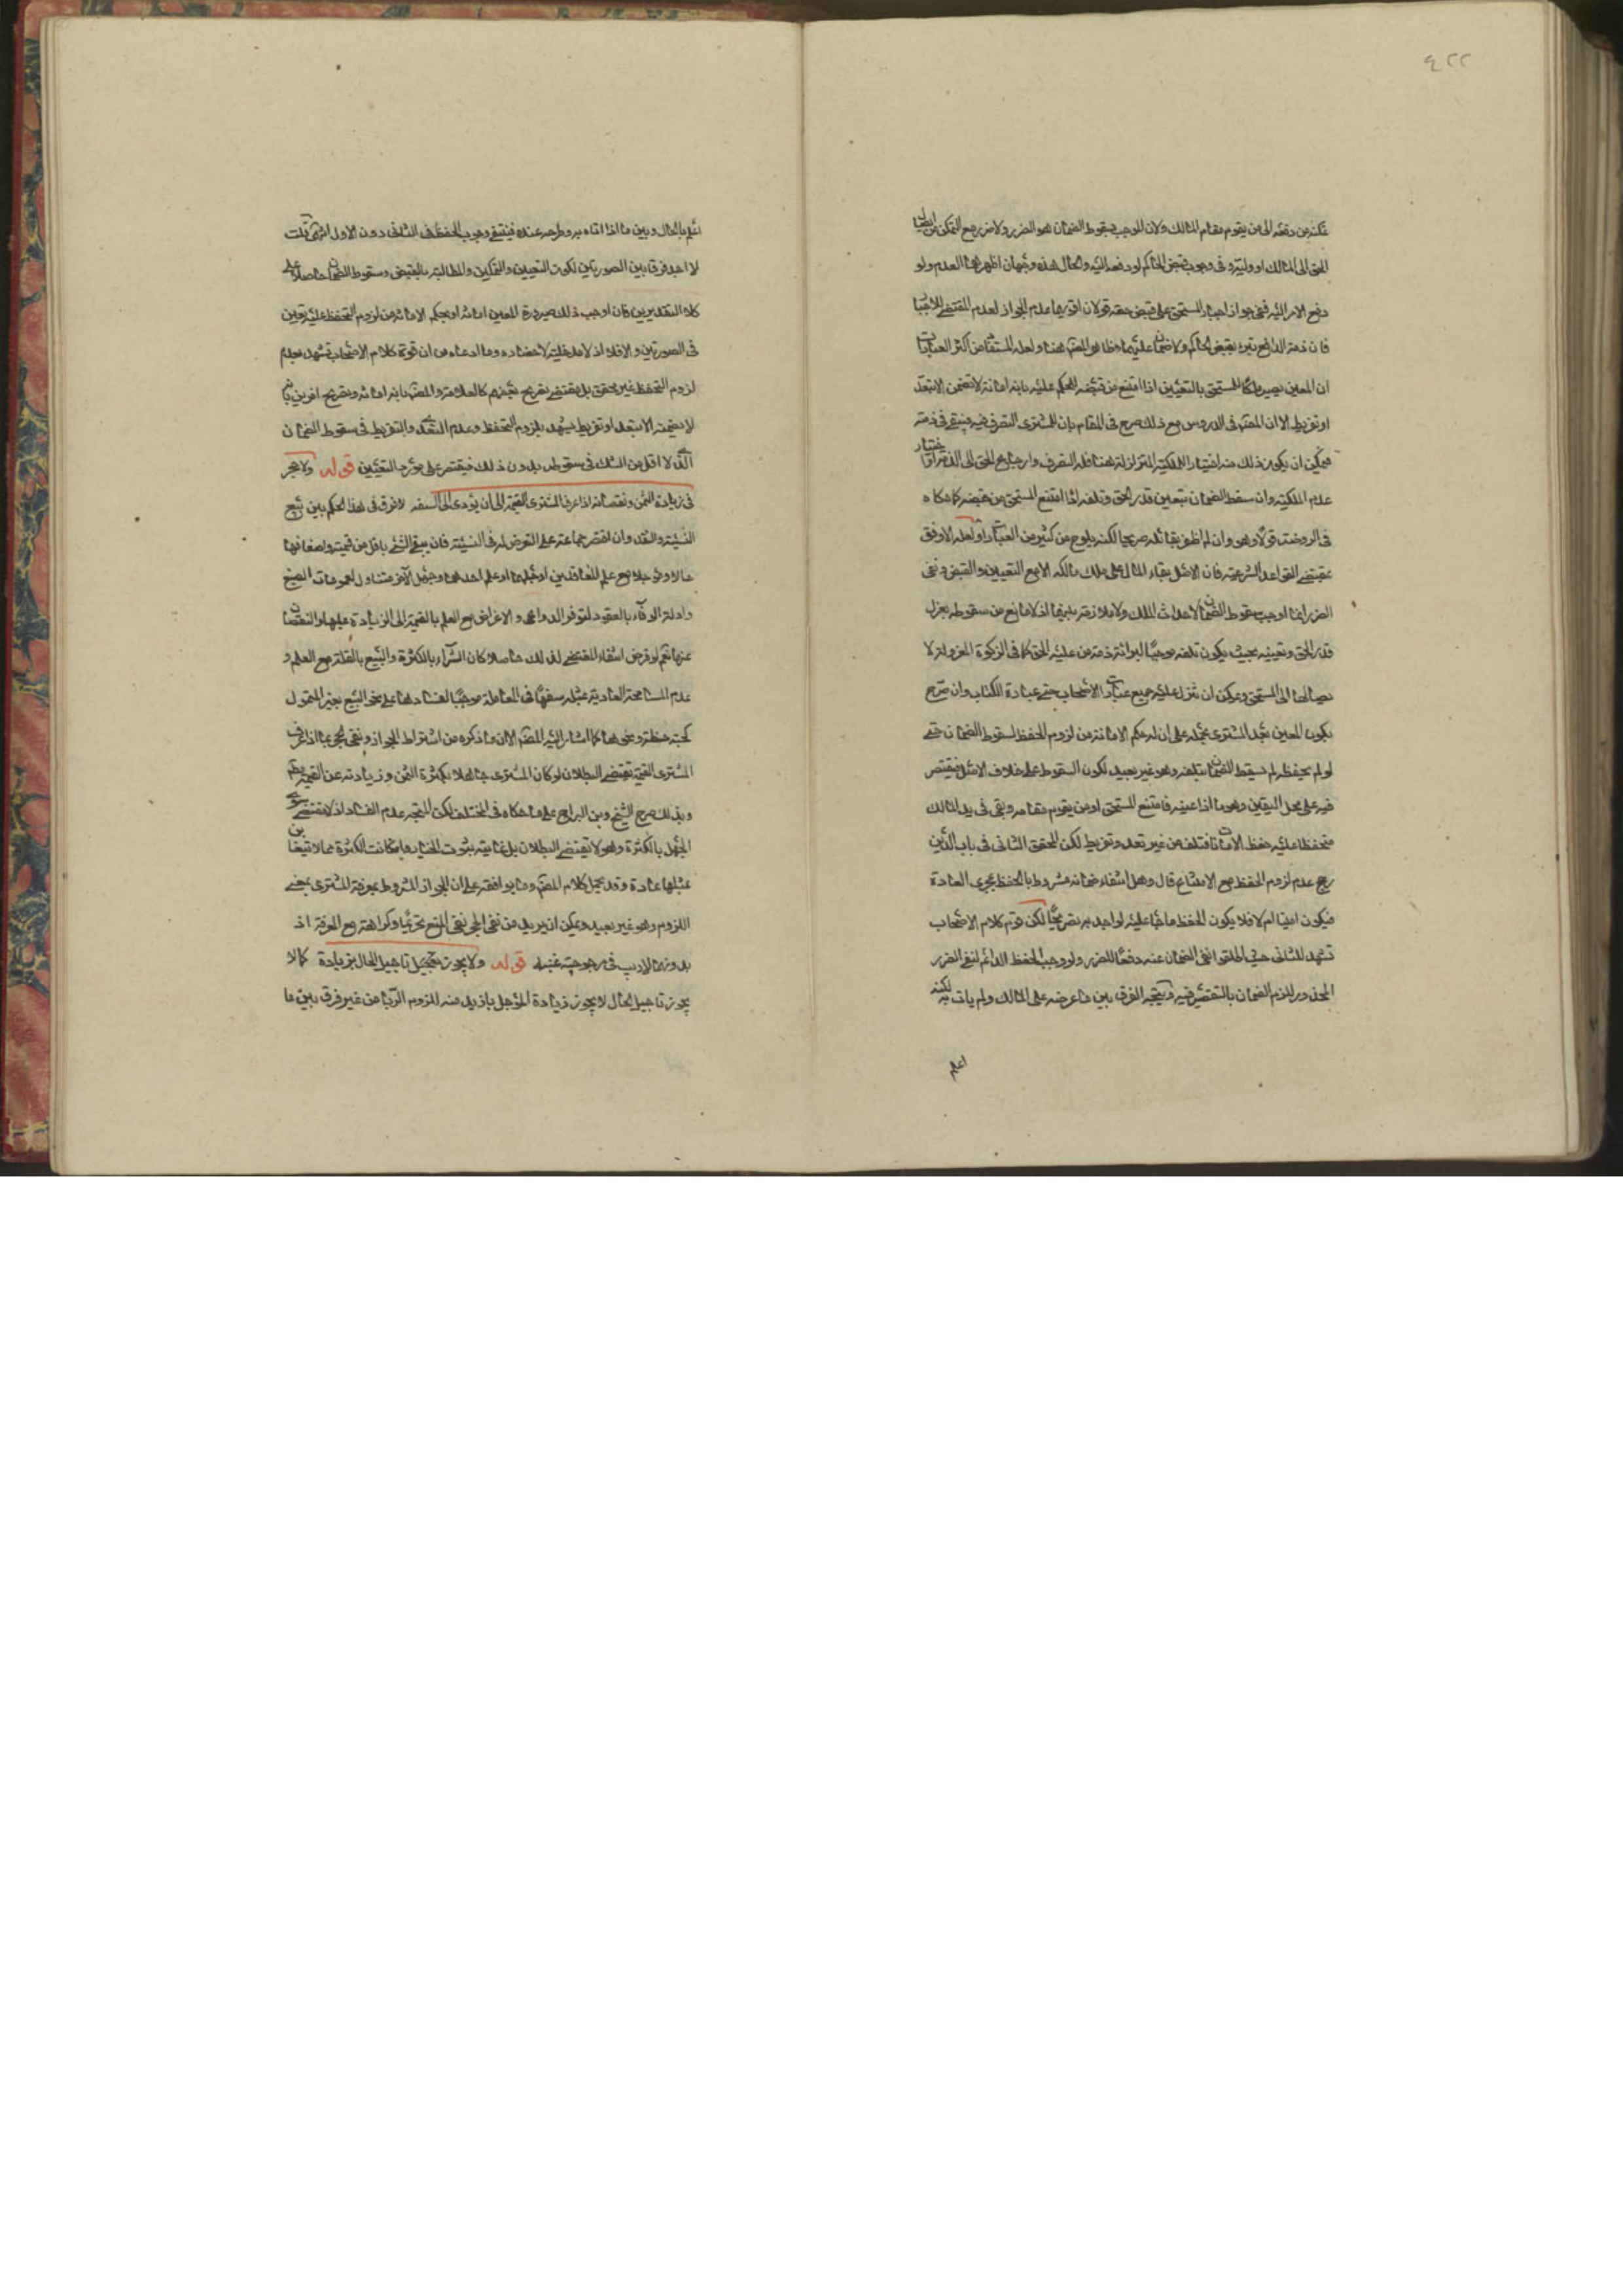 ٤٢٢
تمكنه من دفعه الى من يقوم مقام المالك ولان الموجب لسقوط الضمان هو الضرر ولا ضرر مع التمكن من ايصال
الحق الى المالك او وليه وفى وجوب قبض الحاكم لو دفعه اليه والحال هذه وجهان اظهرهما العدم ولو
دفع الامر اليه ففى جواز اجبار المستحق على قبض حقه قولان اقويهما عدم الجواز لعدم المقتضى للاجبار
فان ذمة الدافع تبرء بقبض الحاكم ولا ضمان عليه وظاهر المصنف هنا ولعله المستفاد من اكثر العبارات
ان المعين يصير ملكا للمستحق بالتعيين اذا امتنع من قبضه للحكم عليه بانه امانة لا تضمن الا بتعد
او تفريط الا ان المصنف فى الدروس مع ذلك صرح فى المقام بان للمشترى التصرف فيه فيبقى فى ذمته
فيمكن ان يكون ذلك منه اختيار الملكية المتزلزلة هنا فله التصرف وارجاع الحق الى الذمة او اختيار
عدم الملكية وان سقط الضمان بتعيين قدر الحق وتلفه اذا امتنع المستحق من قبضه كما حكاه
فى الروضة قولا وهو وان لم اظفر بقائله صريحا لكنه يلوح من كثير من العبارات ولعله الاوفق
بمقتضى القواعد الشرعية فان الاصل بقاء المال على ملك مالكه الا مع التعيين والقبض ونفى
الضرر انما اوجب سقوط الضمان لا حداث الملك ولا ملازمة بينهما اذ لا مانع من سقوطه بعزل
قدر الحق وتعيينه بحيث يكون تلفه موجبا لبرائة ذمة من عليه الحق كما فى الزكوة المعزولة لا
يصالها الى المستحق ويمكن ان تنزل عليه جميع عبارات الاصحاب حتى عبارة الكتاب وان صرح
بكون المعين بيد المشترى يحمله على ان له حكم الامانة من لزوم الحفظ لسقوط الضمان حتى
لو لم يحفظه لم يسقط الضمان بتلفه وهو غير بعيد لكون السقوط على خلاف الاصل فيقتصر
فيه على محل اليقين وهو ما اذا عينه فامتنع المستحق او من يقوم مقامه وبقى فى يد المالك
متحفظا عليه حفظ الامانات فتلف من غير تعد وتفريط لكن المحقق الثانى فى باب الدين
رجح عدم لزوم الحفظ مع الامتناع قال وهل انتفاء ضمانه مشروط بالحفظ بمجرى العادة
فيكون امينا ام لا فلا يكون الحفظ واجبا عليه لم اجد به تصريحا لكن قوة كلام الاصحاب
تشهد للثانى حيث اطلقوا نفى الضمان عنه دفعا للضرر ولو وجب الحفظ الدائم لبقى الضرر
المحذور للزوم الضمان بالتقصير فيه ويتجه الفرق بين ما عرضه على المالك ولم يات به لكنه
اعلم
اعلم بالحال وبين ما اذا اتاه به وطرحه عنده فينتفى وجوب الحفظ فى الثانى دون الاول انتهى قلت
لا اجد فرقا بين الصورتين لكون التعيين والتمكين والمطالبة بالقبض وسقوط الضمان حاصلا على
كلا التقديرين فان اوجب ذلك صيرورة المعين امانة او بحكم الامانة من لزوم التحفظ عليه تعين
فى الصورتين والا فلا اذ لا مدخلية لاحضاره وما ادعاه من ان قوة كلام الاصحاب تشهد بعدم
لزوم التحفظ غير محقق بل مقتضى تصريح بعضهم كالعلامة والمصنف بانه امانة وتصريح اخرين بانه
لا يضمنه الا بتعد او تفريط يشهد بلزوم التحفظ وعدم التعدى والتفريط فى سقوط الضمان
الذى لا اقل من الشك فى سقوطه بدون ذلك فيقتصر على مورد التعيين قوله ولا حجر
فى زيادة الثمن ونقصانه اذا عرف المشترى القيمة الى ان يؤدى الى السفه لا فرق فى هذا الحكم بين بيع
النسيئة والنقد وان اقتصر جماعة على التعرض له فى النسيئة فان بيع الشئ باقل من قيمته واضعافها
حالا ومؤجلا مع علم المتعاقدين او جهلهما او علم احدهما وجهل الآخر متناول لعمومات البيع
وادلة الوفاء بالعقود لتوفر الدواعى والاغراض مع العلم بالقيمة الى الزيادة عليها والنقصان
عنها نعم لو فرض انتفاء المقتضى لذلك حاصلا كان الشراء بالكثرة والبيع بالقلة مع العلم و
عدم المسامحة العادية بمثله سفها فى المعاملة موجبا لفسادها على نحو البيع بغير المتمول
كحبة حنطة ونحوها كما اشار اليه المصنف الا ان ما ذكره من اشتراط الجواز ونفى الحجر بما اذا عرف
المشترى القيمة يقتضى البطلان لو كان المشترى جاهلا بكثرة الثمن وزيادته عن القيمة
وبذلك صرح الشيخ وبن البراج على ما حكاه فى المختلف لكن المتجه عدم الفساد اذ لا مقتضى سوى
الجهل بالكثرة وهو لا يقتضى البطلان بل غايته ثبوت الخيار به اذا كانت الكثرة مما لا يتغابن
بمثلها عادة وقد يحمل كلام المصنف وما يوافقه على ان الجواز المشروط بمعرفة المشترى بمعنى
اللزوم وهو غير بعيد ويمكن ان يريد من نفى الحجر نفى المنع تحريما وكراهة مع المعرفة اذ
بدونها لا ريب فى مرجوحية غبنه قوله ولا يجوز تعجيل تاجيل الحال بزيادة كما لا
يجوز تاجيل الحال لا يجوز زيادة المؤجل بازيد منه للزوم الربا من غير فرق بين ما